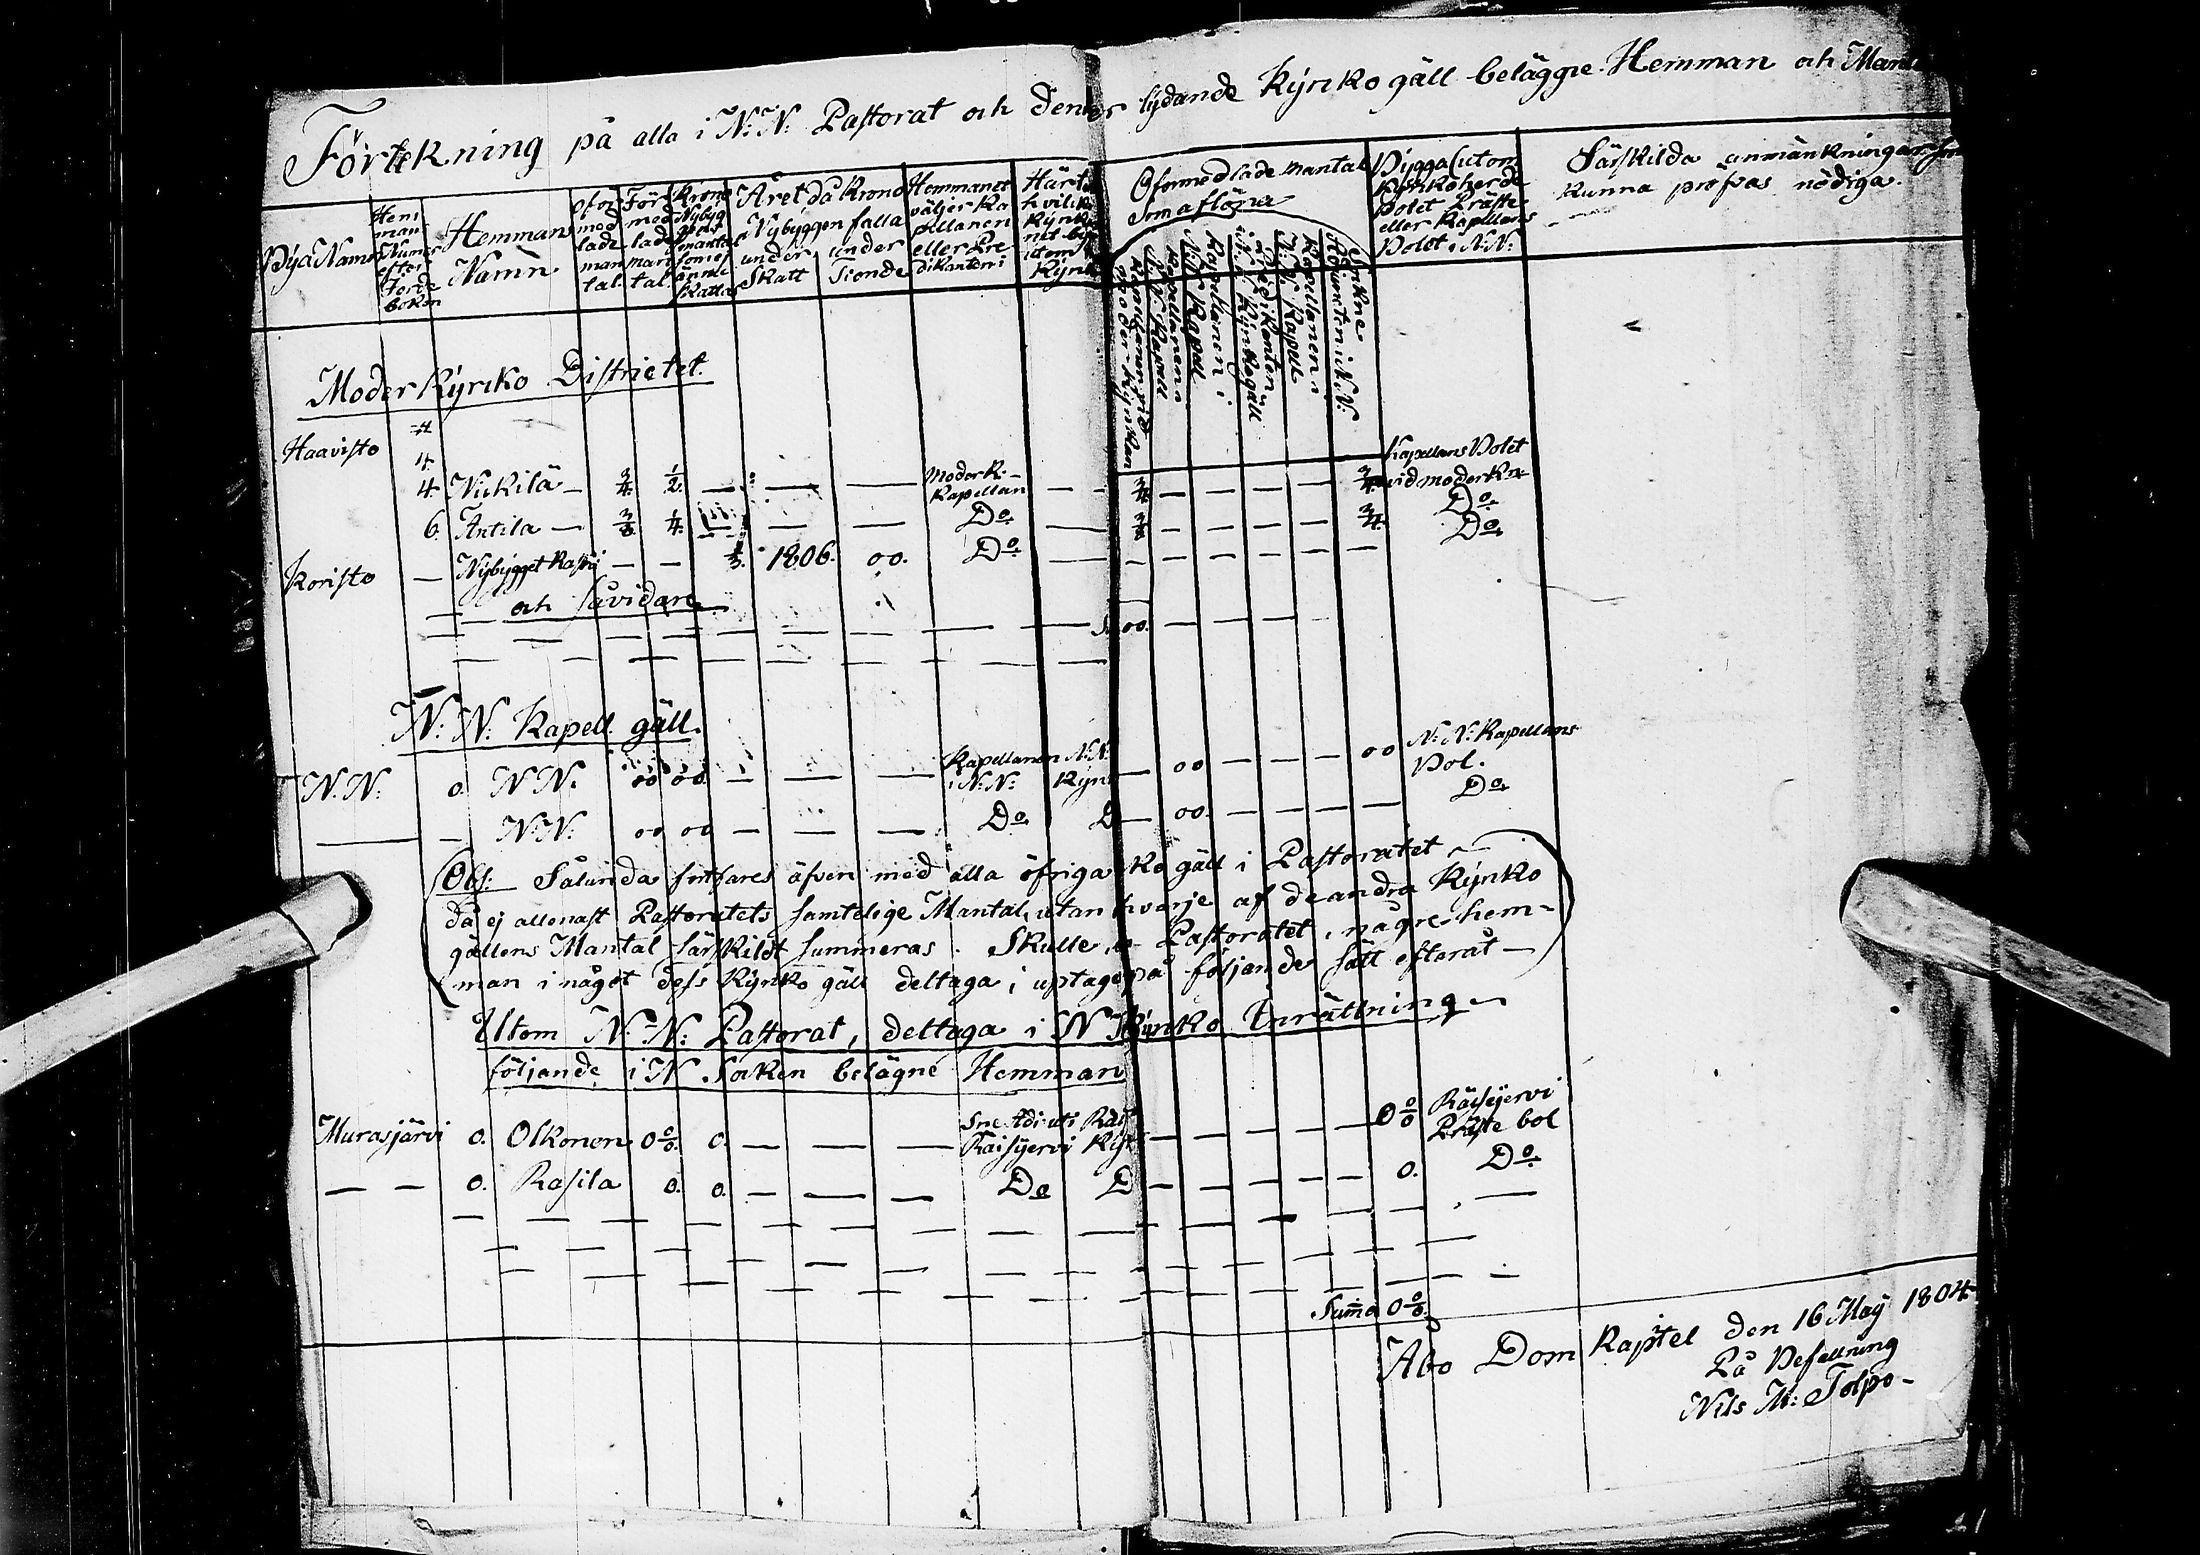 Förtekning på alla i N: N: Pastorat och lydande Kyrko gäll belägne Hemman och
Byä Namn
Hem
mans
Numer
efter
Jorde
boken
Hemmans
Namn
ofor
med
lade
man
tal.
För
med
lade
man
tal.
Krono
Nybyg
mantal
som ej
ännu
skatta
Året då Krono
Nybyggen falla
under Skatt
under Tionde
Hemmanet
väljer Ka
pellanen
eller Pre
dikanten i
Oformedlade mantal
som aflöna
Kapellanen vid
Moder Kyrkan
Kapellanen i
N: N: Kapell
Kapellanen i
N: N: Kapell
Predikanten
i N: N: Kyrkogäll
Kapellanen i
N: N: Kapell
Bygga utom
Kyrkoherde
Bolet Präste
eller Kapellans
Bolet i N: N:
Särskilda anmärkningar som
kunna pröfvas nödiga.
Moder Kyrko Districtet.
Haavisto
4.
4. Nickilä — 3/4. 1/2. — — — Moderk: Kapellan — — 3/4 — — — — 3/4. Kapellans Bolet vid moderk
6. Antila — 3/8 1/4. — — — Do — 3/8 — — — — 3/4. Do
Koristo — Nybygget — — 1/3. 1806. 00. Do — — — — — — — Do
och såvidare
S. 00. — — —
N: N: Kapell gäll.
N: N: 0. N N: 00 00 — — — Kapellanen i N: N: N: N: Kyrk — 00 — — — 00 N: N: Kapellans Bol.
— — N: N: 00 00 — — — Do D — 00. — — — — Do
Obs: Sålunda fortfares äfven med alla öfriga ko gäll i Pastoratet —
då ej allenast Pastoratets samtelige Mantal, utan hvarje af de andra Kyrko
gällens Mantal särskildt summeras. Skulle Pastoratet, någre hem-
man i något dess Kyrko gäll deltaga, uptages på följande sätt efteråt —
Utom N: N: Pastorat, deltaga i N Kyrko Inrättning
följande i N Socken belägne Hemman
Murasjärvi 0. Olkonen 0 0/0. 0. — — — — — — — — 0 0/0 Räisyervi Präste bol
— — 0. Rasila 0. 0. — — — Do D — — — — — 0. Do
Summa 0 0/0.
Åbo Dom Kapitel den 16 May 1804.
På Befallning
Nils M: Tolpo-